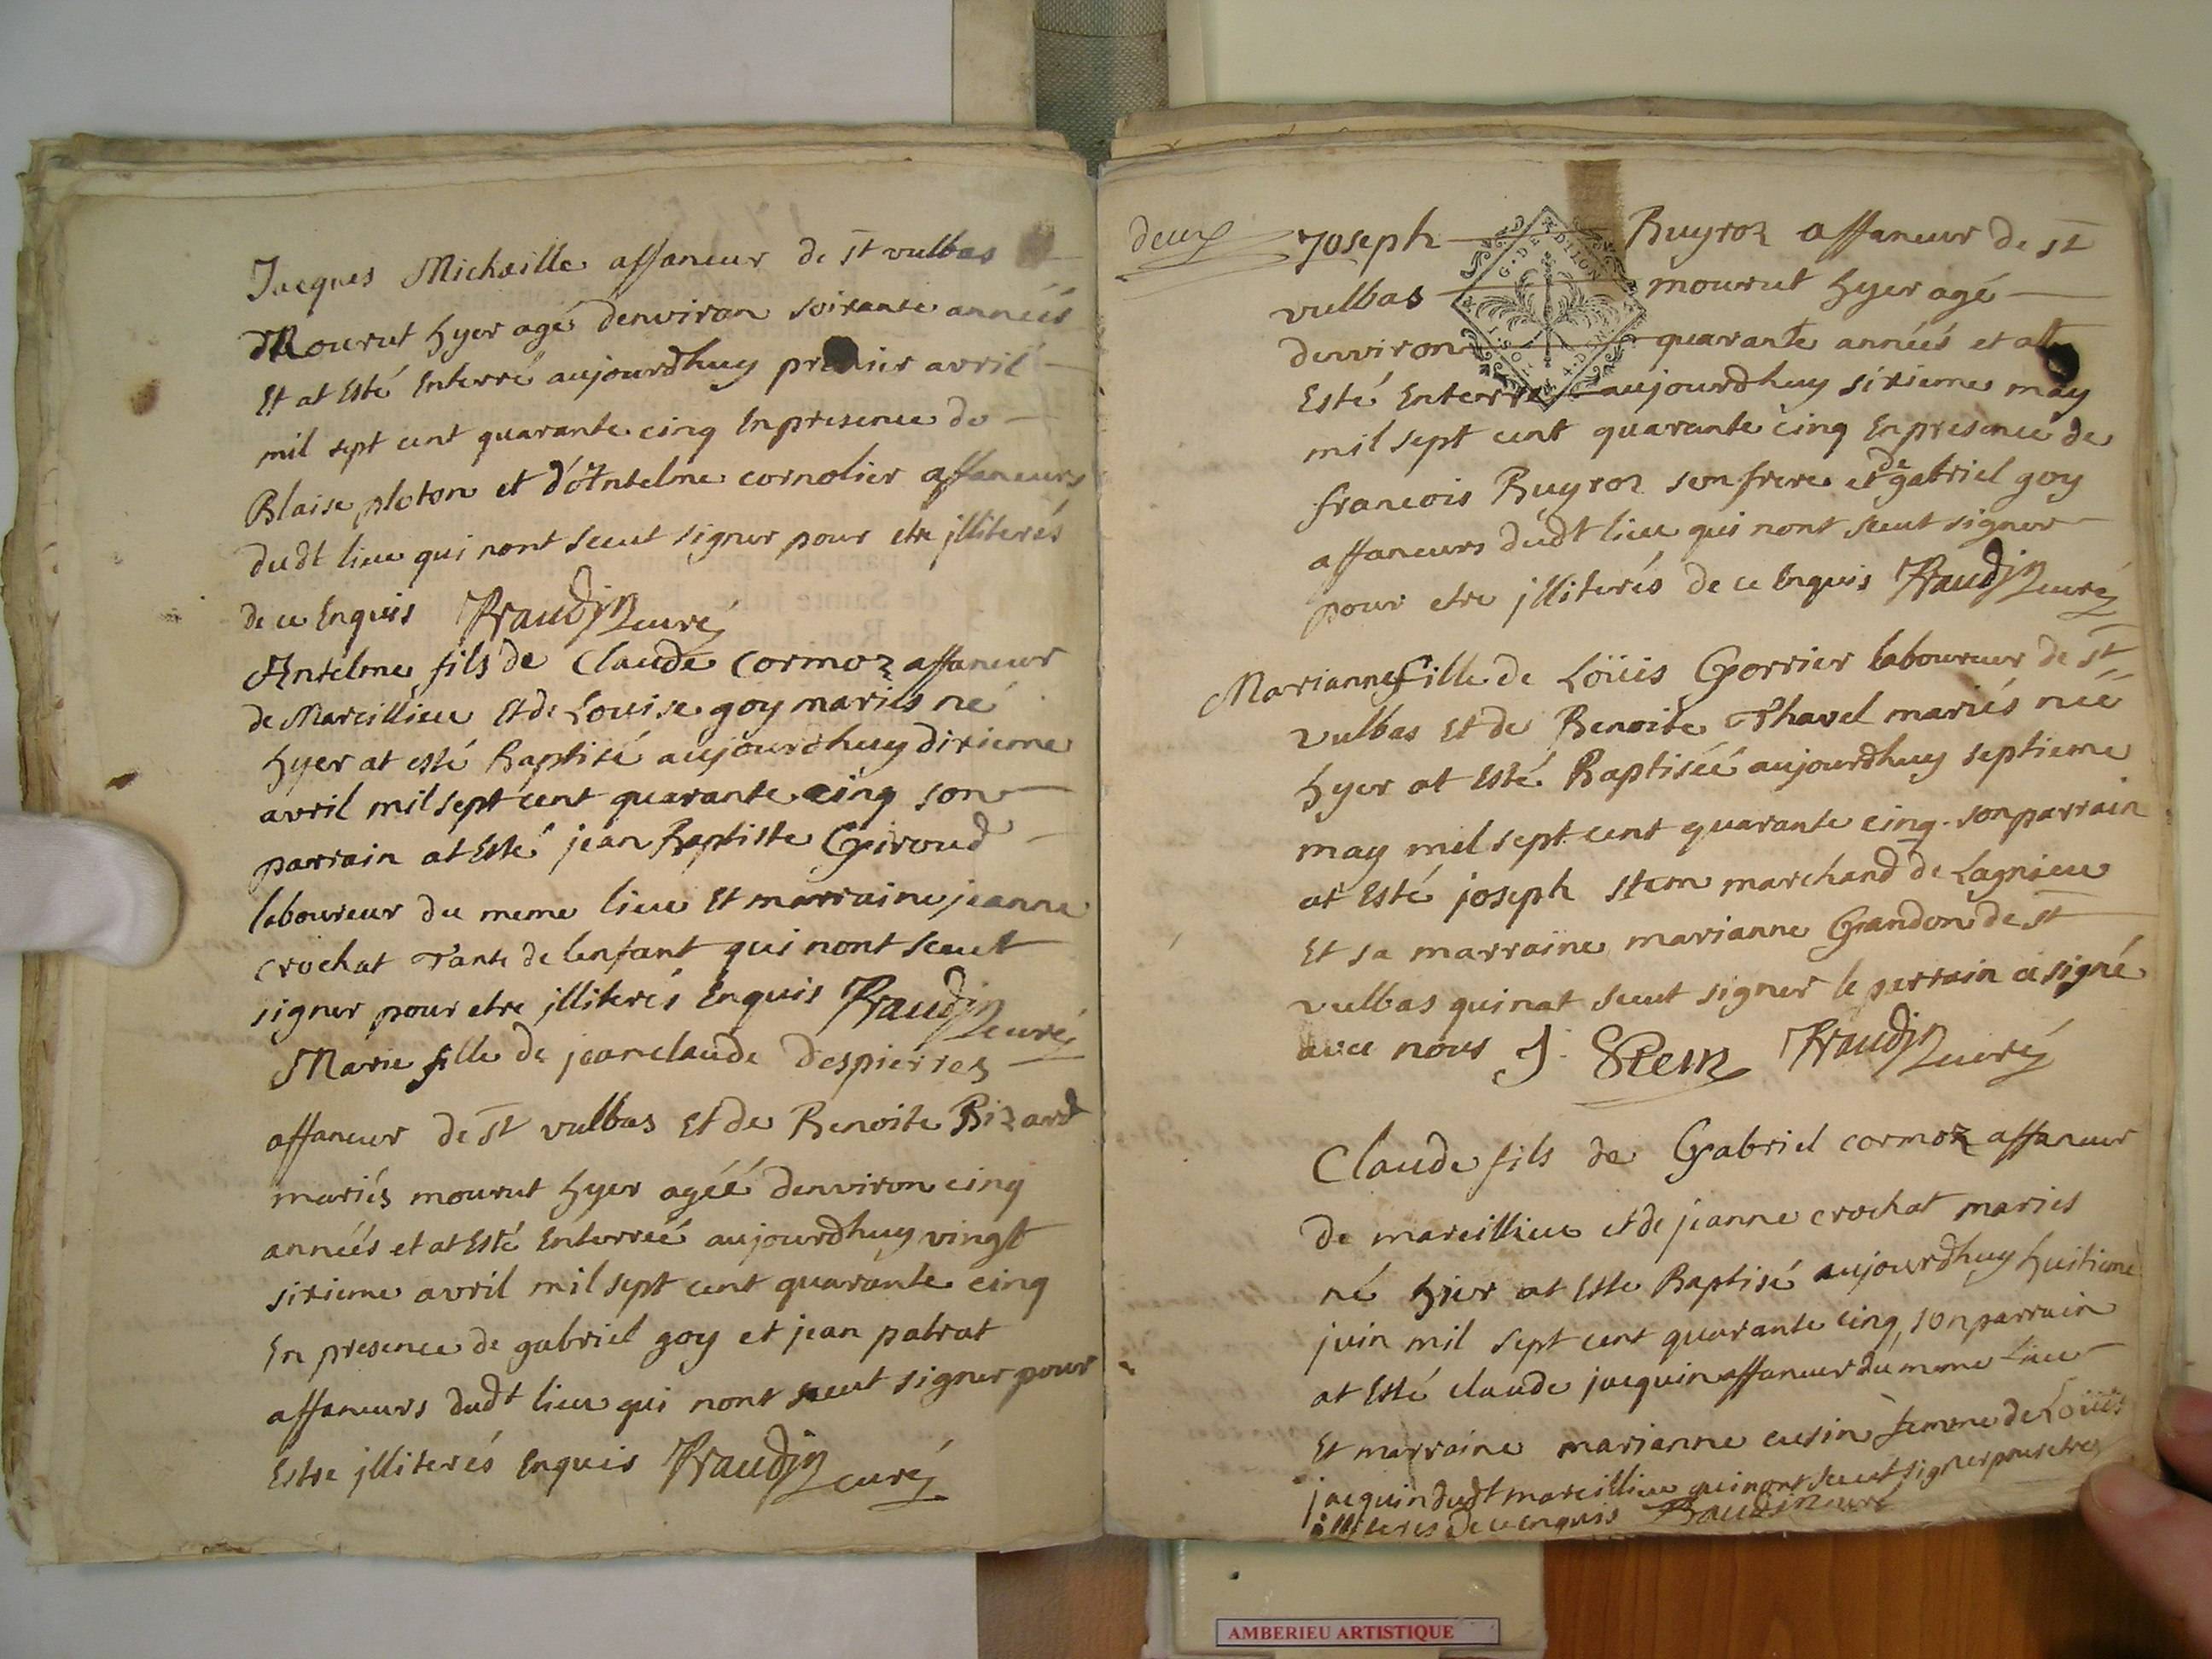 Jacques Michaille affaneur de st vulbas
Mourut hyer agé denviron soixante années
Et at Esté Enterré aujourdhuy premier avril
mil sept cent quarante cinq Enpresence de
Blaise ploton et d'Antelme cornolier affaneurs
dudt lieu qui nont sceut signer pour etre jlliterés
de ce Enquis Braudin curé
Antelme fils de Claude Cormoz affaneur
de Marcillieu Et de Louise goy mariés né
hyer at esté Baptisé aujourdhuy dixieme
avril mil sept cent quarante cinq son
parrain at Esté jean Baptiste Giroud
laboureur du meme lieu Et marraine jeanne
crochat Tante de lenfant qui nont sceut
signer pour etre jlliterés Enquis Braudin curé
Marie fille de jeanclaude Despierres
affaneur de st vulbas Et de Benoite Bizard
mariés mourut hyer agéé denviron cinq
années et at Esté Enterréé aujourdhuy vingt
sixieme avril mil sept cent quarante cinq
En presence de gabriel goy et jean patrat
affaneurs dudt lieu qui nont sceut signer pour
Estre jlliterés Enquis Braudin curé
deux
Joseph Buyroz affaneur de st
vulbas mourut hyer agé
denviron quarante années et at
Esté Enterré aujourdhuy sixieme may
mil sept cent quarante cinq Enpresence de
francois Buyroz son frere et de gabriel goy
affaneurs dudt lieu qui nont sceut signer
pour etre jlliterés de ce Enquis Braudin curé
Marianne fille de Loüis Gorrier laboureur de st
vulbas Et de Benoite Thavel mariés néé
hyer at Esté Baptiséé aujourdhuy septieme
may mil sept cent quarante cinq son parrain
at Esté joseph stem marchand de Lagnieu
Et sa marraine marianne Grandon de st
vulbas qui nat sceut signer le parrain a signé
avec nous J. Stem Braudin curé
Claude fils de Gabriel cormoz affaneur
de marcillieu et de jeanne crochat mariés
né hier at Esté Baptisé aujourdhuy huitieme
juin mil sept cent quarante cinq, son parrain
at Esté claude jacquin affaneur du meme Lieu
Et marraine marianne cusin femme de Loüis
jacquin dudt marcillieu qui nont sceut signer pour etre
jlliteres de ce enquis Braudin curé
AMBERIEU ARTISTIQUE